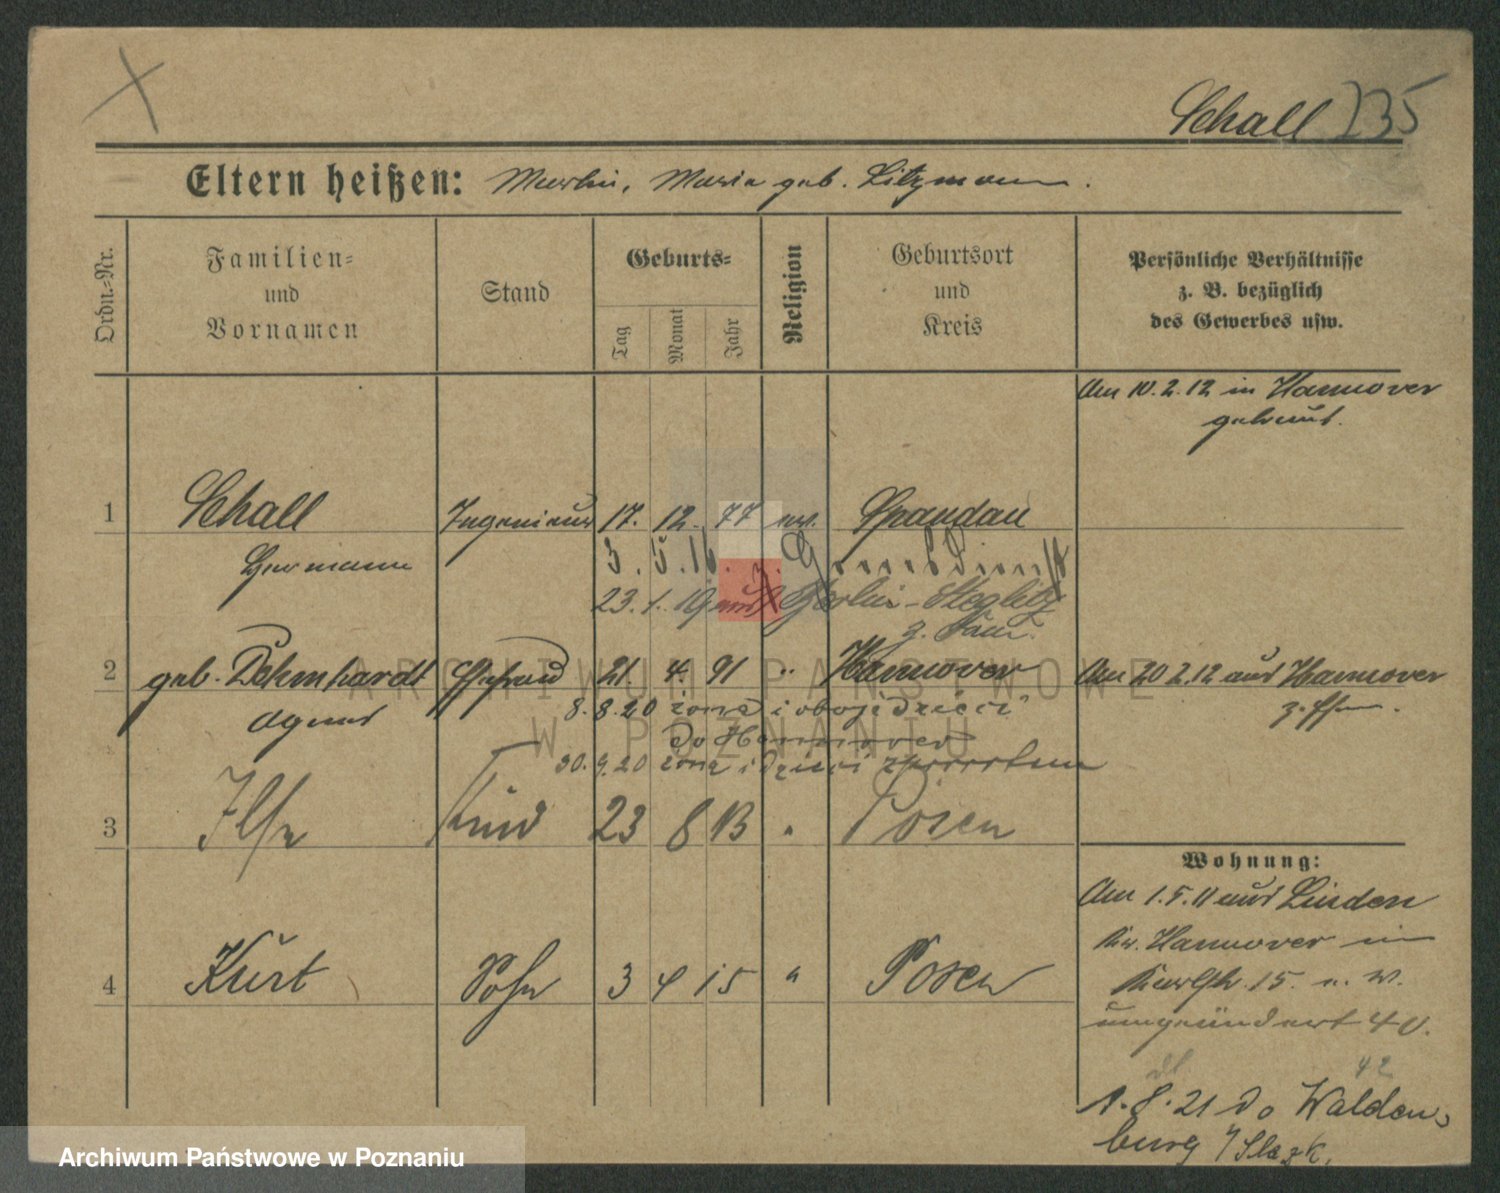 Schall 235
Eltern heißen: Martin, Maria geb. Litzmann.
Ordn.-Nr.
Familien-
und
Vornamen
Stand
Geburts-
Tag
Monat
Jahr
Religion
Geburtsort
und
Kreis
Persönliche Verhältnisse
z. B. bezüglich
des Gewerbes usw.
Am 10.2.12 in Hannover
getraut.
1 Schall Ingenieur 17. 12. 77 ev. Spandau
Hermann
3. 5. 16. z.
23. 1. 19 aus Berlin-Steglitz
z. Fam.
2 geb. Dehmhardt Ehefrau 21. 4. 91 " Hannover
Agnes
Am 20 2.12 aus Hannover
z. Ehm.
8. 8. 20 żona i oboje dzieci
do Hannover
30. 9. 20 żona i dzieci
3 Ilse Kind 23 8 13 " Posen
4 Kurt Sohn 3 4 15 " Posen
Wohnung:
Am 1.5.11 aus Linden
Kr. Hannover in
15. u. W.
umgeändert 40.
42
1. 8. 21 do Walden-
burg / Śląsk.
ARCHIWUM PAŃSTWOWE
W POZNANIU
Archiwum Państwowe w Poznaniu